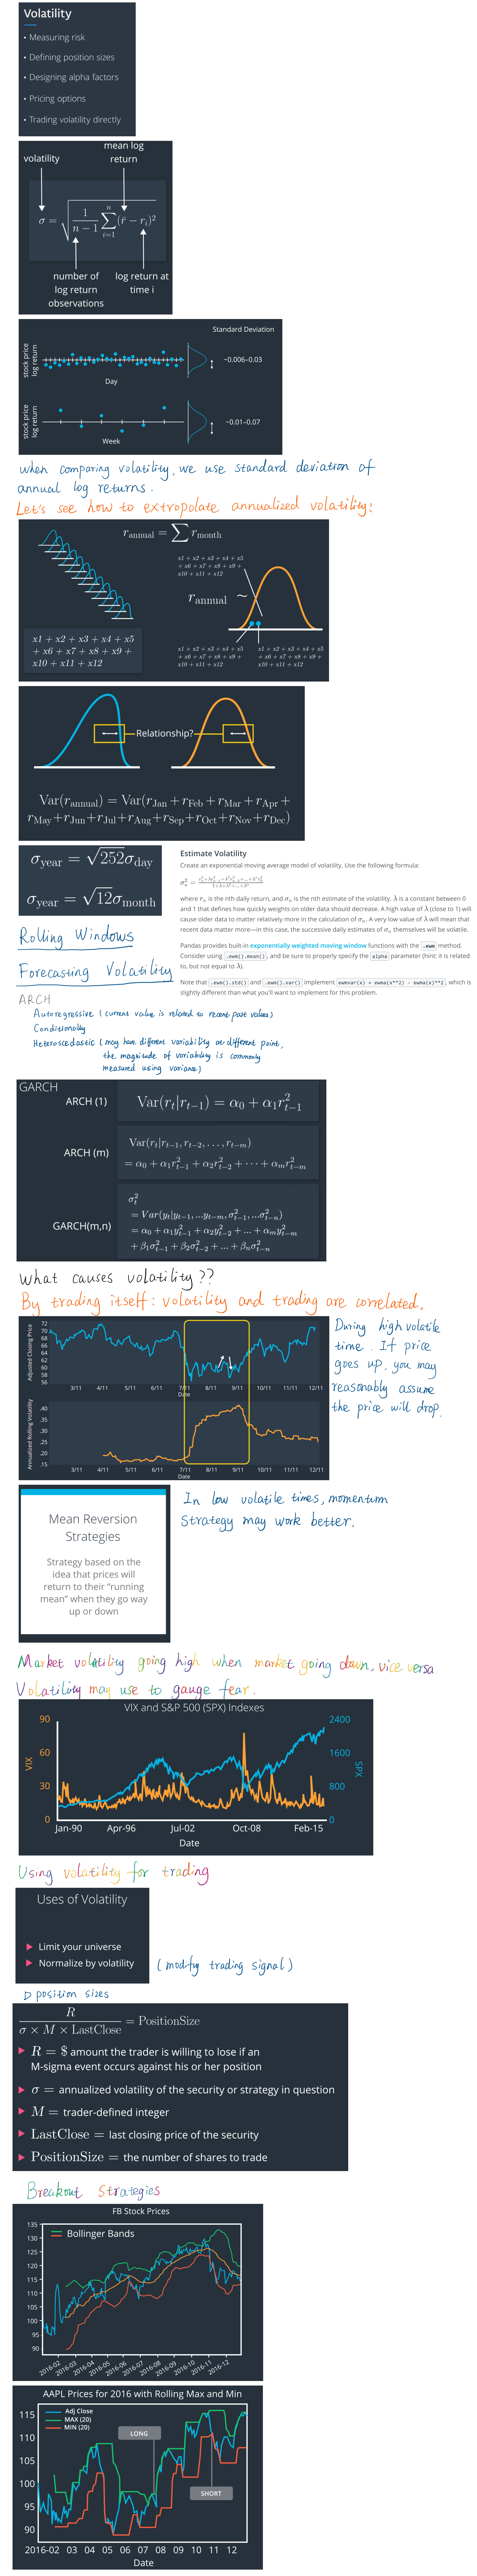 Volatility
• Measuring risk
• Defining position sizes
• Designing alpha factors
• Pricing options
• Trading volatility directly
mean log
return
volatility
σ = √(1/(n − 1) ∑_{i=1}^{n} (r̄ − r_i)²)
number of
log return
observations
log return at
time i
Standard Deviation
stock price
log return
~0.006–0.03
Day
stock price
log return
~0.01–0.07
Week
when comparing volatility, we use standard deviation of
annual log returns.
Let's see how to extropolate annualized volatility:
r_annual = ∑ r_month
x1 + x2 + x3 + x4 + x5
+ x6 + x7 + x8 + x9 +
x10 + x11 + x12
r_annual ~
x1 + x2 + x3 + x4 + x5
+ x6 + x7 + x8 + x9 +
x10 + x11 + x12
x1 + x2 + x3 + x4 + x5
+ x6 + x7 + x8 + x9 +
x10 + x11 + x12
x1 + x2 + x3 + x4 + x5
+ x6 + x7 + x8 + x9 +
x10 + x11 + x12
Relationship?
Var(r_annual) = Var(r_Jan + r_Feb + r_Mar + r_Apr +
r_May+r_Jun+r_Jul+r_Aug+r_Sep+r_Oct+r_Nov+r_Dec)
σ_year = √252σ_day
σ_year = √12σ_month
Estimate Volatility
Create an exponential moving average model of volatility. Use the following formula:
where r_n is the nth daily return, and σ_n is the nth estimate of the volatility. λ is a constant between 0
and 1 that defines how quickly weights on older data should decrease. A high value of λ (close to 1) will
cause older data to matter relatively more in the calculation of σ_n. A very low value of λ will mean that
recent data matter more—in this case, the successive daily estimates of σ_n themselves will be volatile.
Pandas provides built-in exponentially weighted moving window functions with the .ewm method.
Consider using .ewm().mean(), and be sure to properly specify the alpha parameter (hint: it is related
to, but not equal to λ).
Note that .ewm().std() and .ewm().var() implement ewmvar(x) = ewma(x**2) - ewma(x)**2, which is
slightly different than what you'll want to implement for this problem.
Rolling Windows
Forecasting Volatility
ARCH
Autoregressive (current value is related to recent past values)
Conditionally
Heteroscedastic (may have different variability at different point,
the magnitude of variability is commonly
measured using variance)
GARCH
ARCH (1)
Var(r_t|r_{t−1}) = α_0 + α_1r²_{t−1}
ARCH (m)
Var(r_t|r_{t−1}, r_{t−2}, . . . , r_{t−m})
= α_0 + α_1r²_{t−1} + α_2r²_{t−2} + · · · + α_mr²_{t−m}
GARCH(m,n)
σ²_t
= Var(y_t|y_{t−1}, ...y_{t−m}, σ²_{t−1}, ...σ²_{t−n})
= α_0 + α_1y²_{t−1} + α_2y²_{t−2} + ... + α_my²_{t−m}
+ β_1σ²_{t−1} + β_2σ²_{t−2} + ... + β_nσ²_{t−n}
What causes volatility??
By trading itself: volatility and trading are correlated.
Adjusted Closing Price
72
70
68
66
64
62
60
58
56
3/11 4/11 5/11 6/11 7/11 8/11 9/11 10/11 11/11 12/11
Date
Annualized Rolling Volatility
.40
.35
.30
.25
.20
.15
3/11 4/11 5/11 6/11 7/11 8/11 9/11 10/11 11/11 12/11
Date
During high volatile
time. If price
goes up, you may
reasonably assume
the price will drop.
Mean Reversion
Strategies
Strategy based on the
idea that prices will
return to their "running
mean" when they go way
up or down
In low volatile times, momentum
strategy may work better.
Market volatility going high when market going down, vice versa
Volatility may use to gauge fear.
VIX and S&P 500 (SPX) Indexes
VIX
90
60
30
0
SPX
2400
1600
800
0
Jan-90 Apr-96 Jul-02 Oct-08 Feb-15
Date
Using volatility for trading
Uses of Volatility
▶ Limit your universe
▶ Normalize by volatility
(modify trading signal)
▷ position sizes
R / (σ × M × LastClose) = PositionSize
▶ R = $ amount the trader is willing to lose if an
M-sigma event occurs against his or her position
▶ σ = annualized volatility of the security or strategy in question
▶ M = trader-defined integer
▶ LastClose = last closing price of the security
▶ PositionSize = the number of shares to trade
Breakout Strategies
FB Stock Prices
Bollinger Bands
135
130
125
120
115
110
105
100
95
90
2016-02 2016-03 2016-04 2016-05 2016-06 2016-07 2016-08 2016-09 2016-10 2016-11 2016-12
AAPL Prices for 2016 with Rolling Max and Min
Adj Close
MAX (20)
MIN (20)
LONG
SHORT
115
110
105
100
95
90
2016-02 03 04 05 06 07 08 09 10 11 12
Date